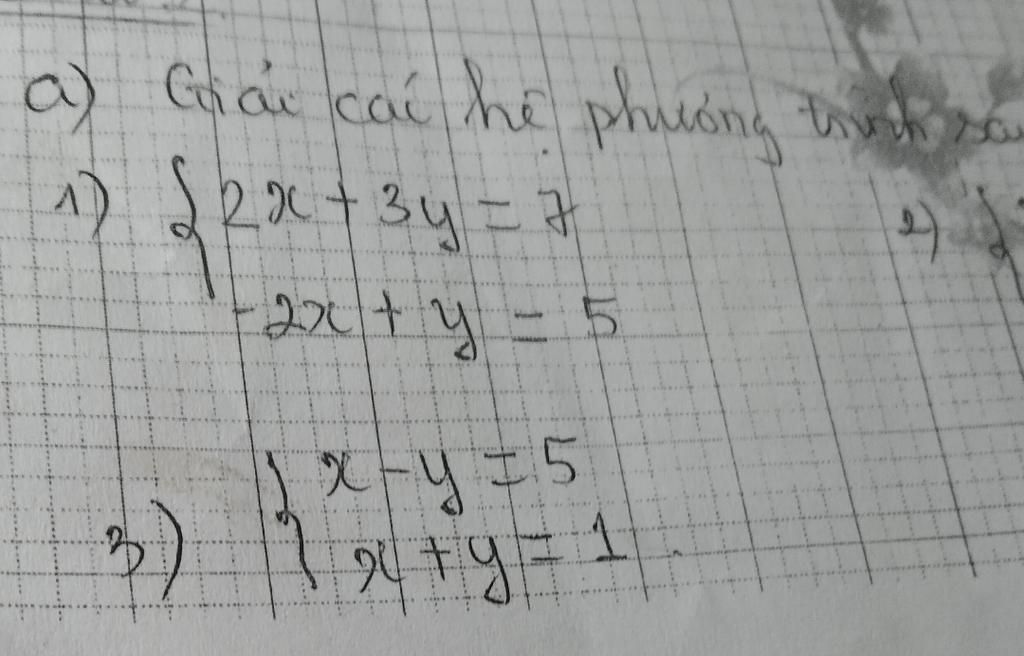 a) Giải các hệ phương trình sau
1) { 2x + 3y = 7 2) {
-2x + y = 5
{ x - y = 5
3) x + y = 1